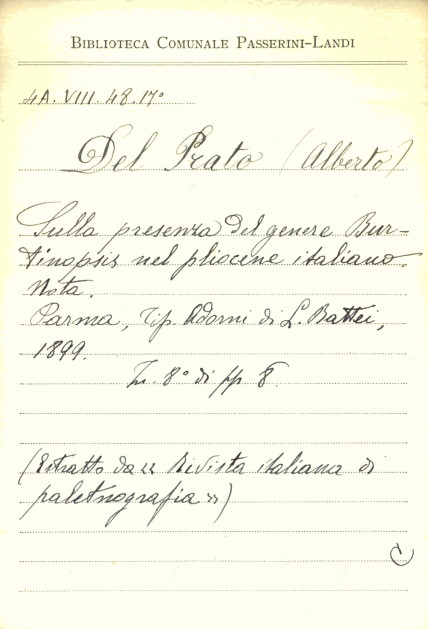 BIBLIOTECA COMUNALE PASSERINI-LANDI
4A. VIII. 48. 17°
Del Prato (Alberto)
Sulla presenza del genere Bur-
tinopsis nel pliocene italiano.
Nota.
Parma, Tip. Adorni di L. Battei,
1899.
In. 8° di pp 8.
(Estratto da « Rivista italiana di
paletnografia »)